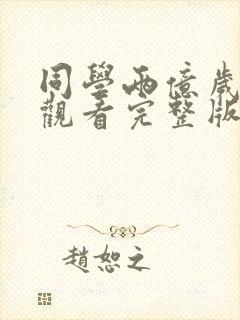 同學兩億歲
觀看完整版
趙恕之